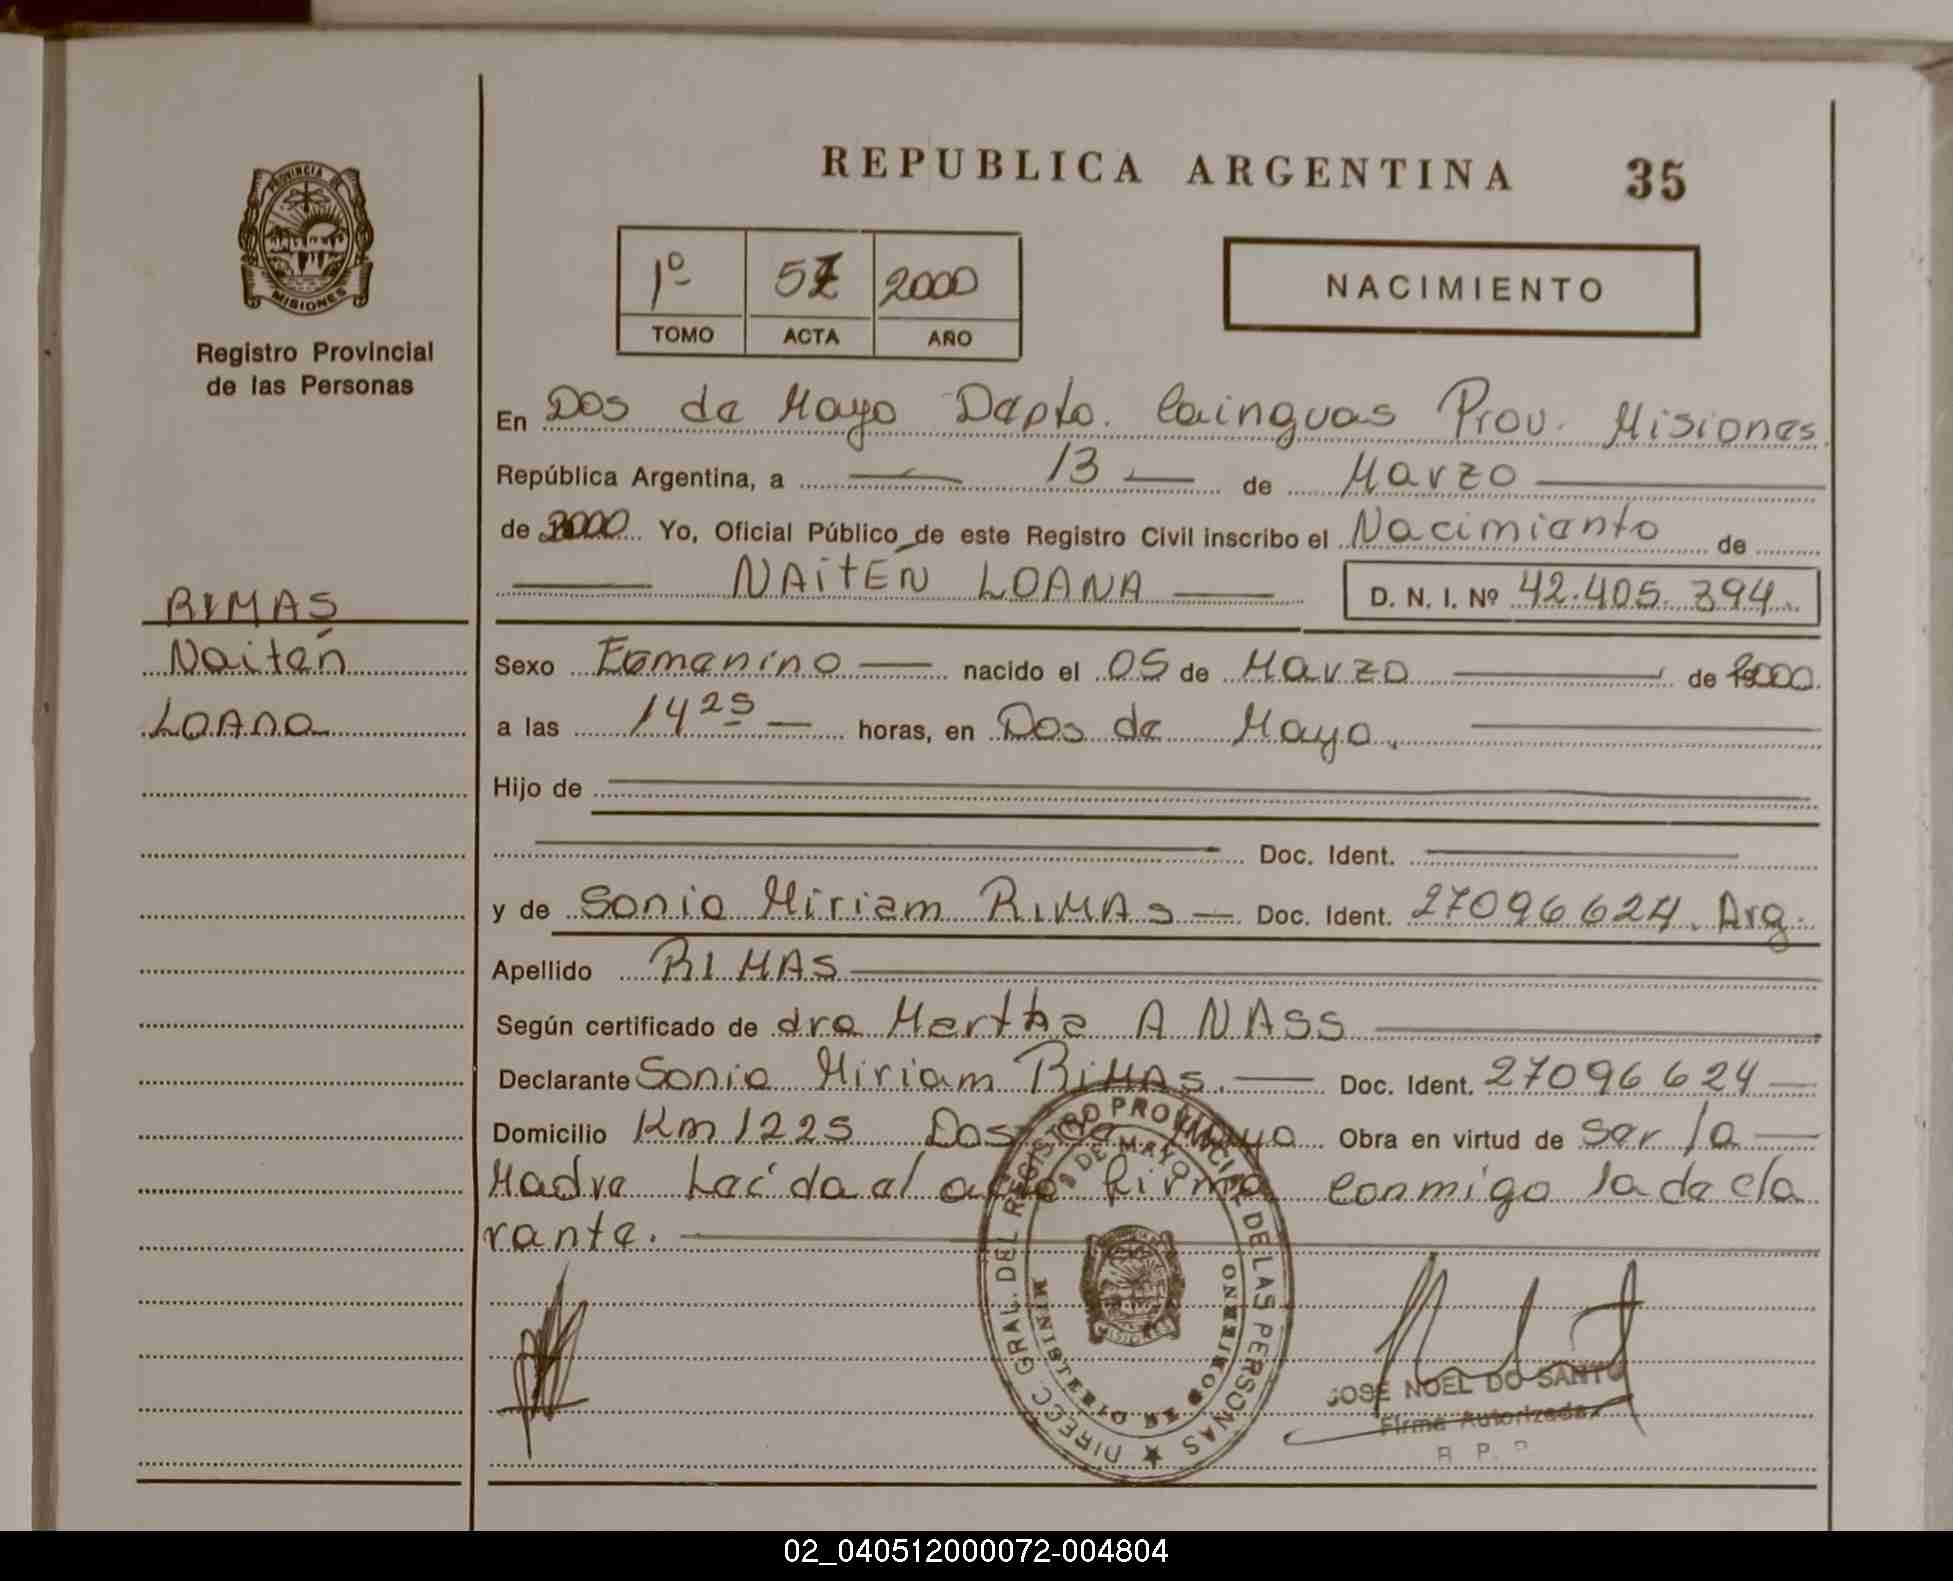 REPUBLICA ARGENTINA 35
PROVINCIA DE
MISIONES
Registro Provincial
de las Personas
1º 2000
TOMO ACTA AÑO
NACIMIENTO
En Dos de Mayo Depto. Cainguas Prov. Misiones
República Argentina, a 13 de Marzo
de 2000 Yo, Oficial Público de este Registro Civil inscribo el Nacimiento de
NAitEN LOANA D. N. I. Nº 42.405.394
RIMAS
Naitén
Loana
Sexo Femenino nacido el 05 de Marzo de 2000
a las 14 25 horas, en Dos de Mayo.
Hijo de
Doc. Ident.
y de Sonia Miriam RIMAS Doc. Ident. 27096624. Arg.
Apellido RIMAS
Según certificado de dra Martha A NASS
Declarante Sonia Miriam RiMAS. Doc. Ident. 27096624
Domicilio Km 1225 Dos de Mayo Obra en virtud de ser la
Madre Leída al acta firma conmigo la decla
rante.
DIRECC GRAL. DEL REGISTRO PROVINCIAL DE LAS PERSONAS
DE MAYO
MINISTERIO DE GOBIERNO
MISIONES
JOSE NOEL DO SANTO
Firma Autorizada
R. P. P
02_040512000072-004804